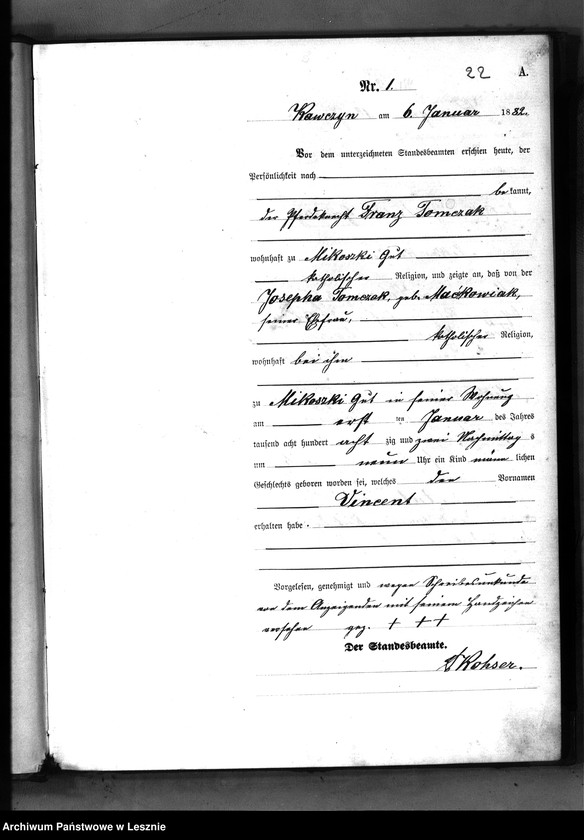 22 A.
Nr. 1.
Kawczyn am 6. Januar 1882.
Vor dem unterzeichneten Standesbeamten erschien heute, der
Persönlichkeit nach
be kannt,
der Pferdeknecht Franz Tomczak
wohnhaft zu Mikoszki Gut
katholischer Religion, und zeigte an, daß von der
Josepha Tomczak, geb. Maćkowiak,
seiner Ehefrau,
katholischer Religion,
wohnhaft bei ihm
zu Mikoszki Gut in seiner Wohnung
am erst ten Januar des Jahres
tausend acht hundert acht zig und zwei Nachmittag s
um neun Uhr ein Kind männ lichen
Geschlechts geboren worden sei, welches den Vornamen
Vincent
erhalten habe.
Vorgelesen, genehmigt und wegen Schreibensunkunde
von dem Anzeigenden mit seinem Handzeichen
versehen gez. + ++
Der Standesbeamte.
Kohser.
Archiwum Państwowe w Lesznie